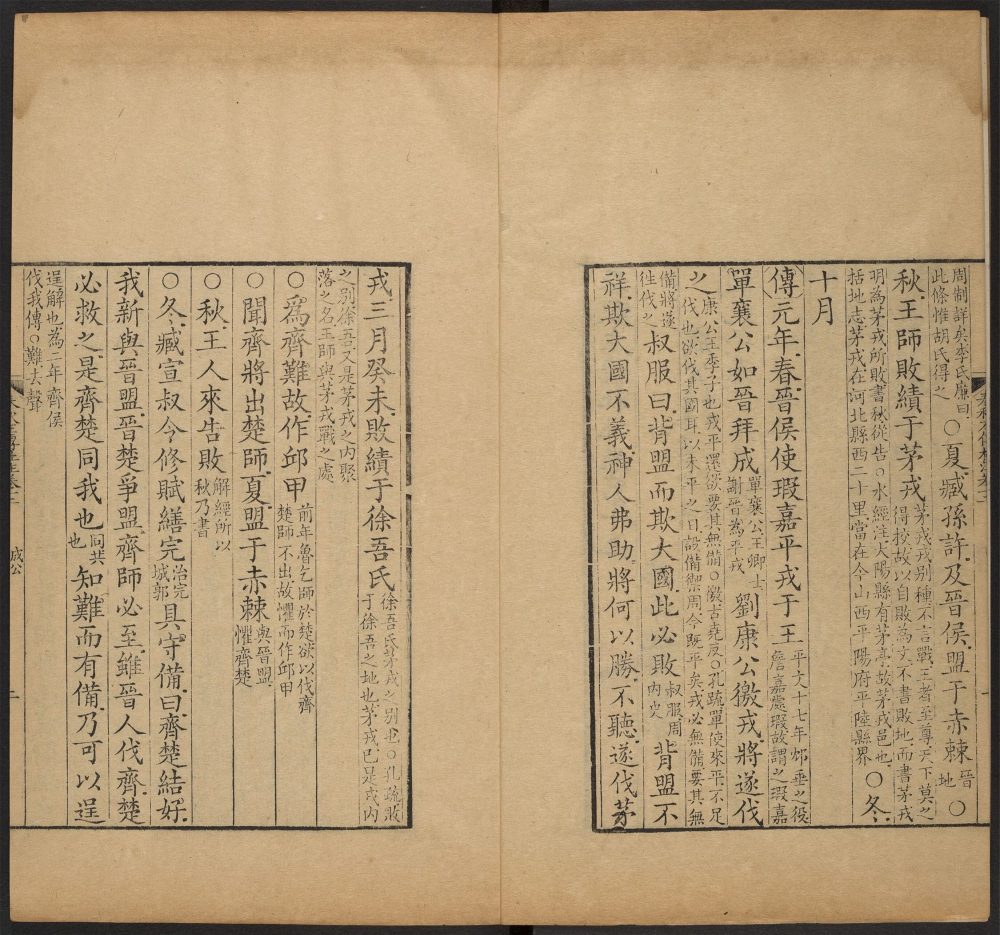 周制詳矣李氏廉曰此條惟胡氏得之○夏臧孫許及晉侯盟于赤棘晉地○
秋王師敗績于茅戎茅戎戎别種不言戰王者至尊天下莫之得校故以自敗為文不書敗地而書茅戎
明為茅戎所敗書秋從告○水經注大陽縣有茅亭故茅戎邑也括地志茅戎在河北縣西二十里當在今山西平陽府平陸縣界○冬
十月
傳元年春晉侯使瑕嘉平戎于王平文十七年邥垂之役詹嘉處瑕故謂之瑕嘉
單襄公如晉拜成單襄公王卿士謝晉為平戎劉康公徼戎將遂伐
之康公王季子也戎平還欲要其無備○徼古堯反○孔疏單使來平不足伐也欲伐其國耳以未平之日設備禦周今既平矣戎必無備要其無
備將遂往伐之叔服曰背盟而欺大國此必敗叔服周内史背盟不
祥欺大國不義神人弗助將何以勝不聽遂伐茅
戎三月癸未敗績于徐吾氏徐吾氏茅戎之别也○孔疏敗于徐吾之地也茅戎已是戎内
之别徐吾又是茅戎之内聚落之名王師與茅戎戰之處
○為齊難故作邱甲前年魯乞師於楚欲以伐齊楚師不出故懼而作邱甲
○聞齊將出楚師夏盟于赤棘與晉盟懼齊楚
○秋王人來告敗解經所以秋乃書
○冬臧宣叔令修賦繕完治完城郭具守備曰齊楚結好
我新與晉盟晉楚爭盟齊師必至雖晉人伐齊楚
必救之是齊楚同我也同共也知難而有備乃可以逞
逞解也為二年齊侯伐我傳○難去聲
成公